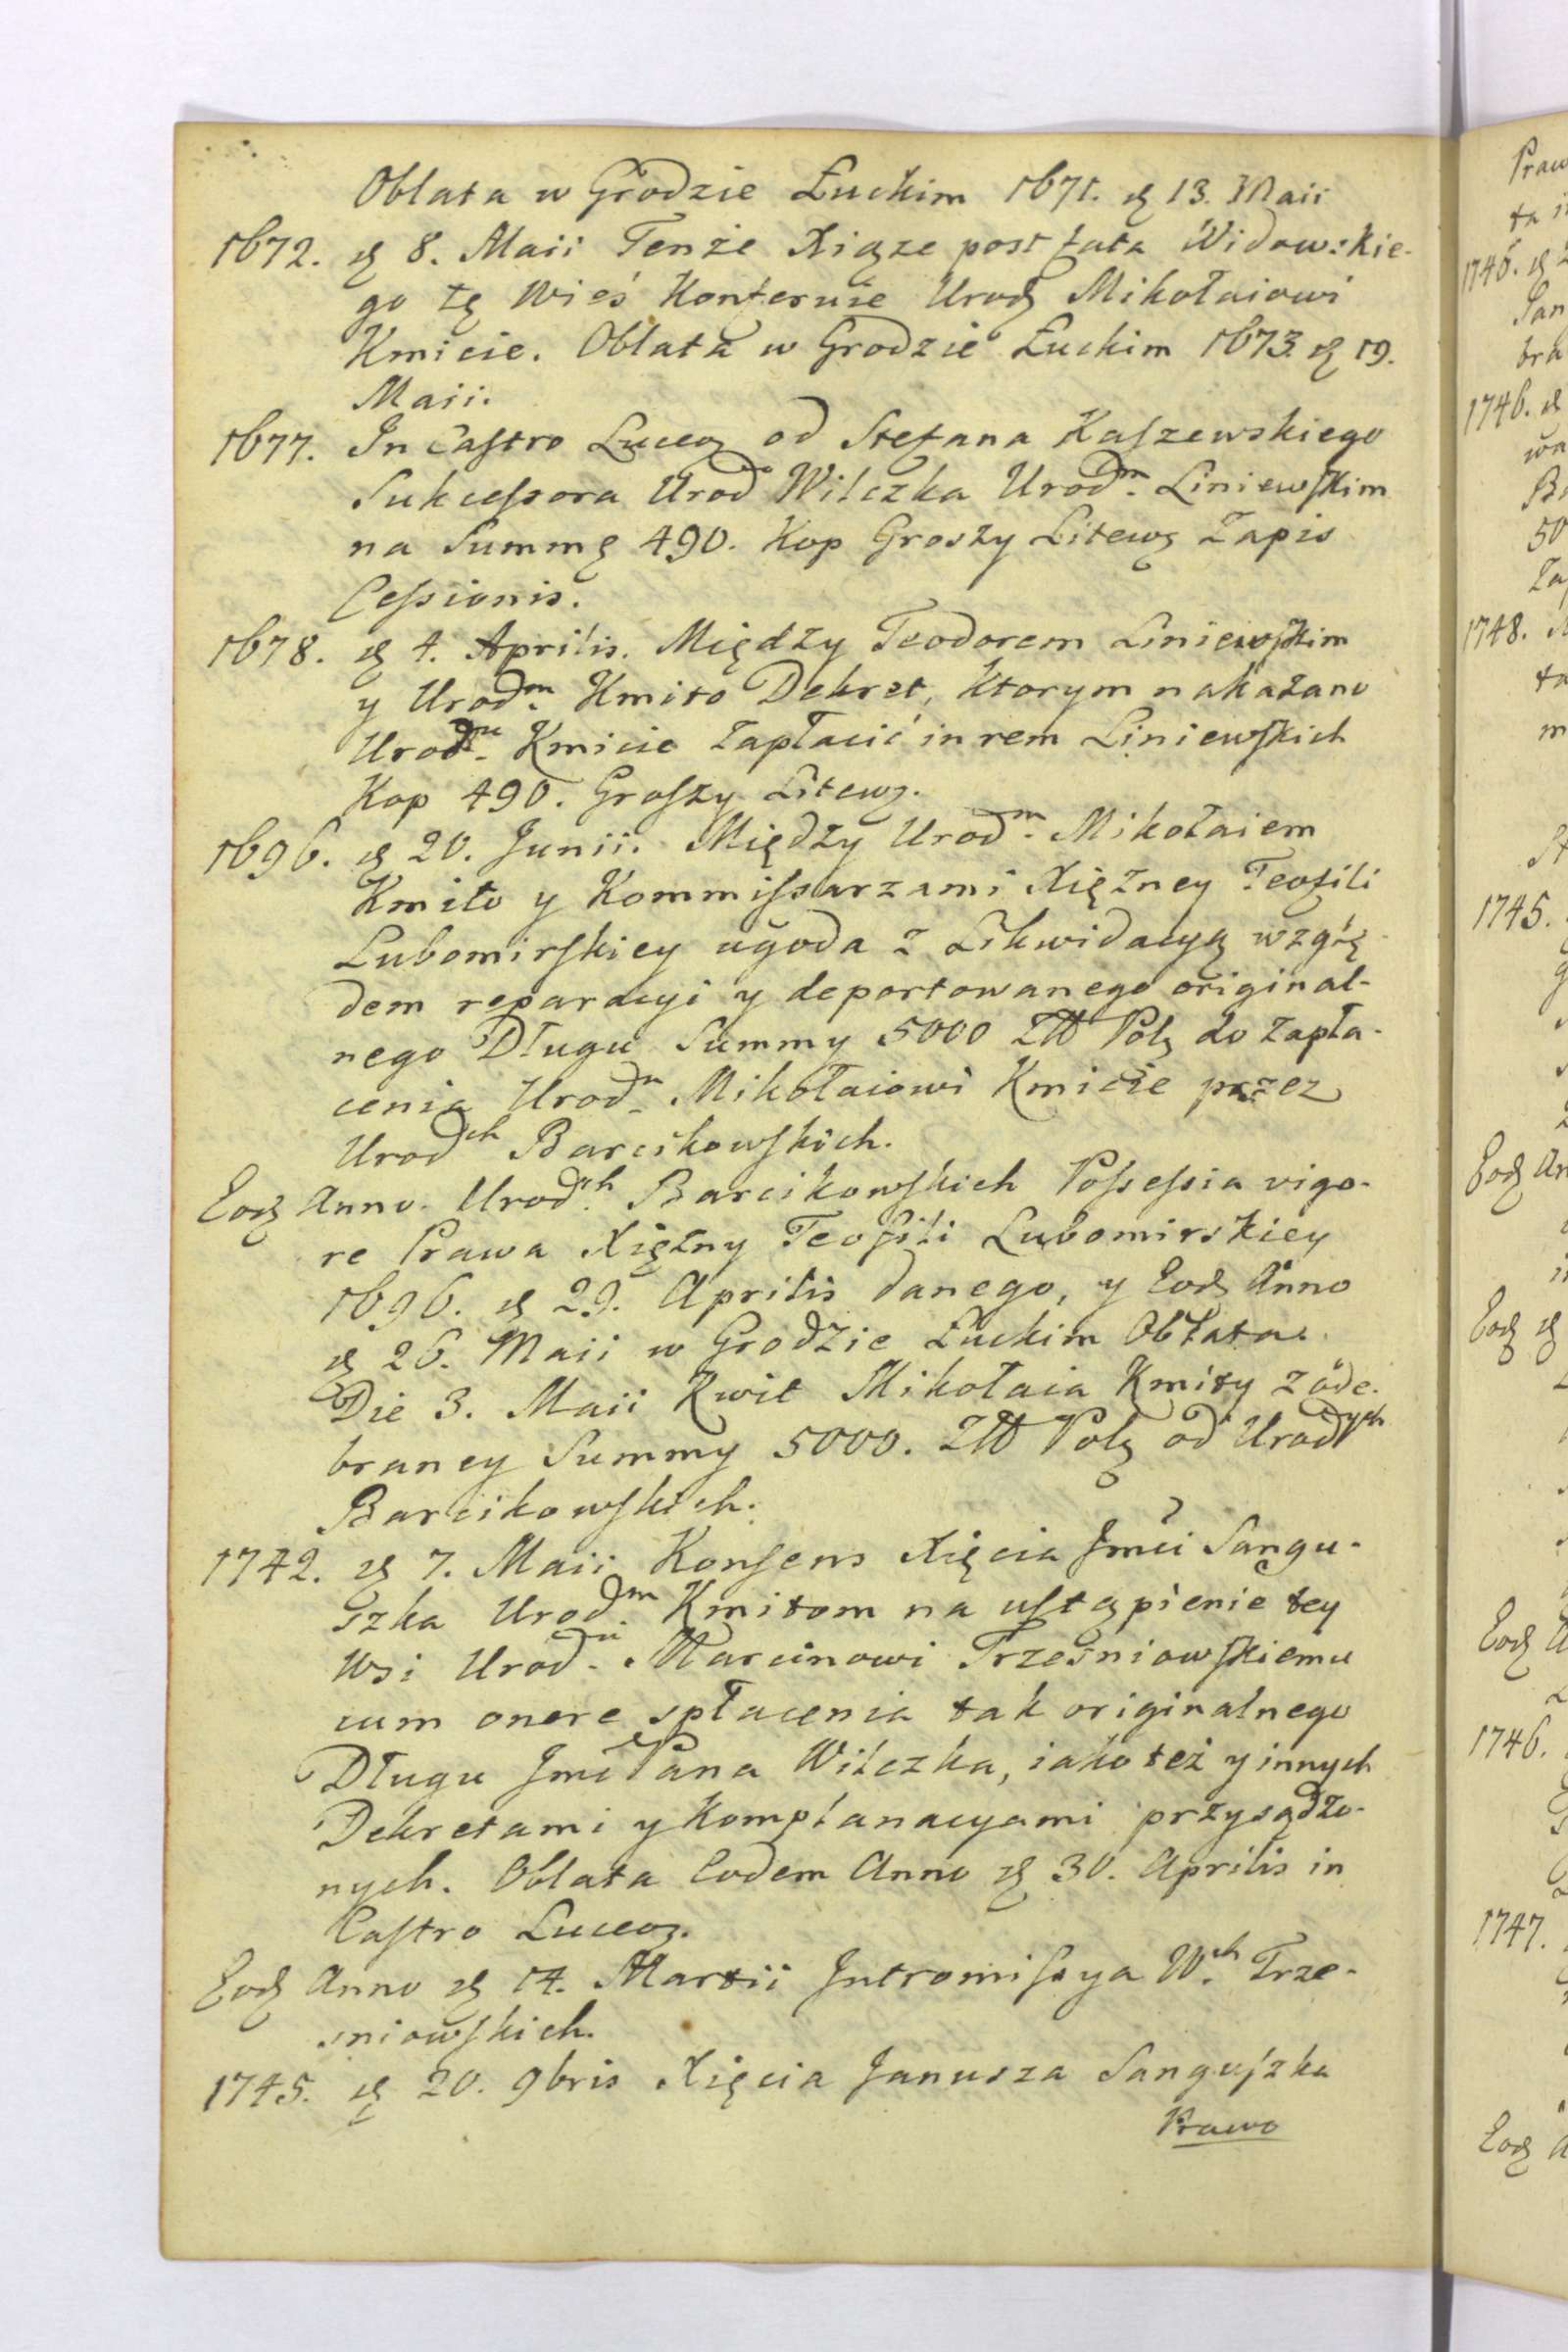 Oblata w Grodzie Łuckim 1671. d 13. Maii
1672. d 8. Maii Tenże Xiąze post fata Widawskie-
go tę Wieś Konferuie Urod Mikołaiowi
Kmicie. Oblata w Grodzie Łuckim 1673. d 19.
Maii.
1677. In Castro Luceo od Stefana Kaszewskiego
Sukcessora Urod Wilczka Urodm. Liniewskim
na Summę 490. Kop Groszy Litew Zapis
Cessionis.
1678. d 4. Aprilis. Między Teodorem Liniewskim
y Urodm. Kmito Dekret, ktorym nakazano
Urodu. Kmicie zapłacić in rem Liniewskich
Kop 490. Groszy Litew.
1696. d 20. Junii. Między Urodm. Mikołaiem
Kmito y Kommissarzami Xiężney Teofili
Lubomirskiey ugoda z Likwidacyą wzglę-
dem reparacyi y deportowanego original-
nego Długu Summy 5000 Złł Pol do zapła-
cenia Urodu. Mikołaiowi Kmicie przez
Urodch Barcikowskich.
Eod Anno. Urodch. Barcikowskich Possessia vigo-
re Prawa Xiężny Teofili Lubomirskiey
1696. d 29. Aprilis danego, y Eod Anno
d 26. Maii w Grodzie Łuckim Obłata.
Die 3. Maii Kwit Mikołaia Kmity z ode-
braney Summy 5000. Złł Pol od Urodych
Barcikowskich.
1742. d 7. Maii Konsens Xięcia Jmći Sangu-
szka Urodm. Kmitom na ustąpienie tey
Wsi Urodu. Marcinowi Trześniowskiemu
cum onere spłacenia tak originalnego
Długu Jmć Pana Wilczka, iako też y innych
Dekretami y Komplanacyami przysądzo-
nych. Oblata Eodem Anno d 30. Aprilis in
Castro Luceo.
Eod Anno d 14. Martii Intromissya W.ch Trze-
sniowskich.
1745. d 20. 9bris Xięcia Janusza Sanguszka
Prawo